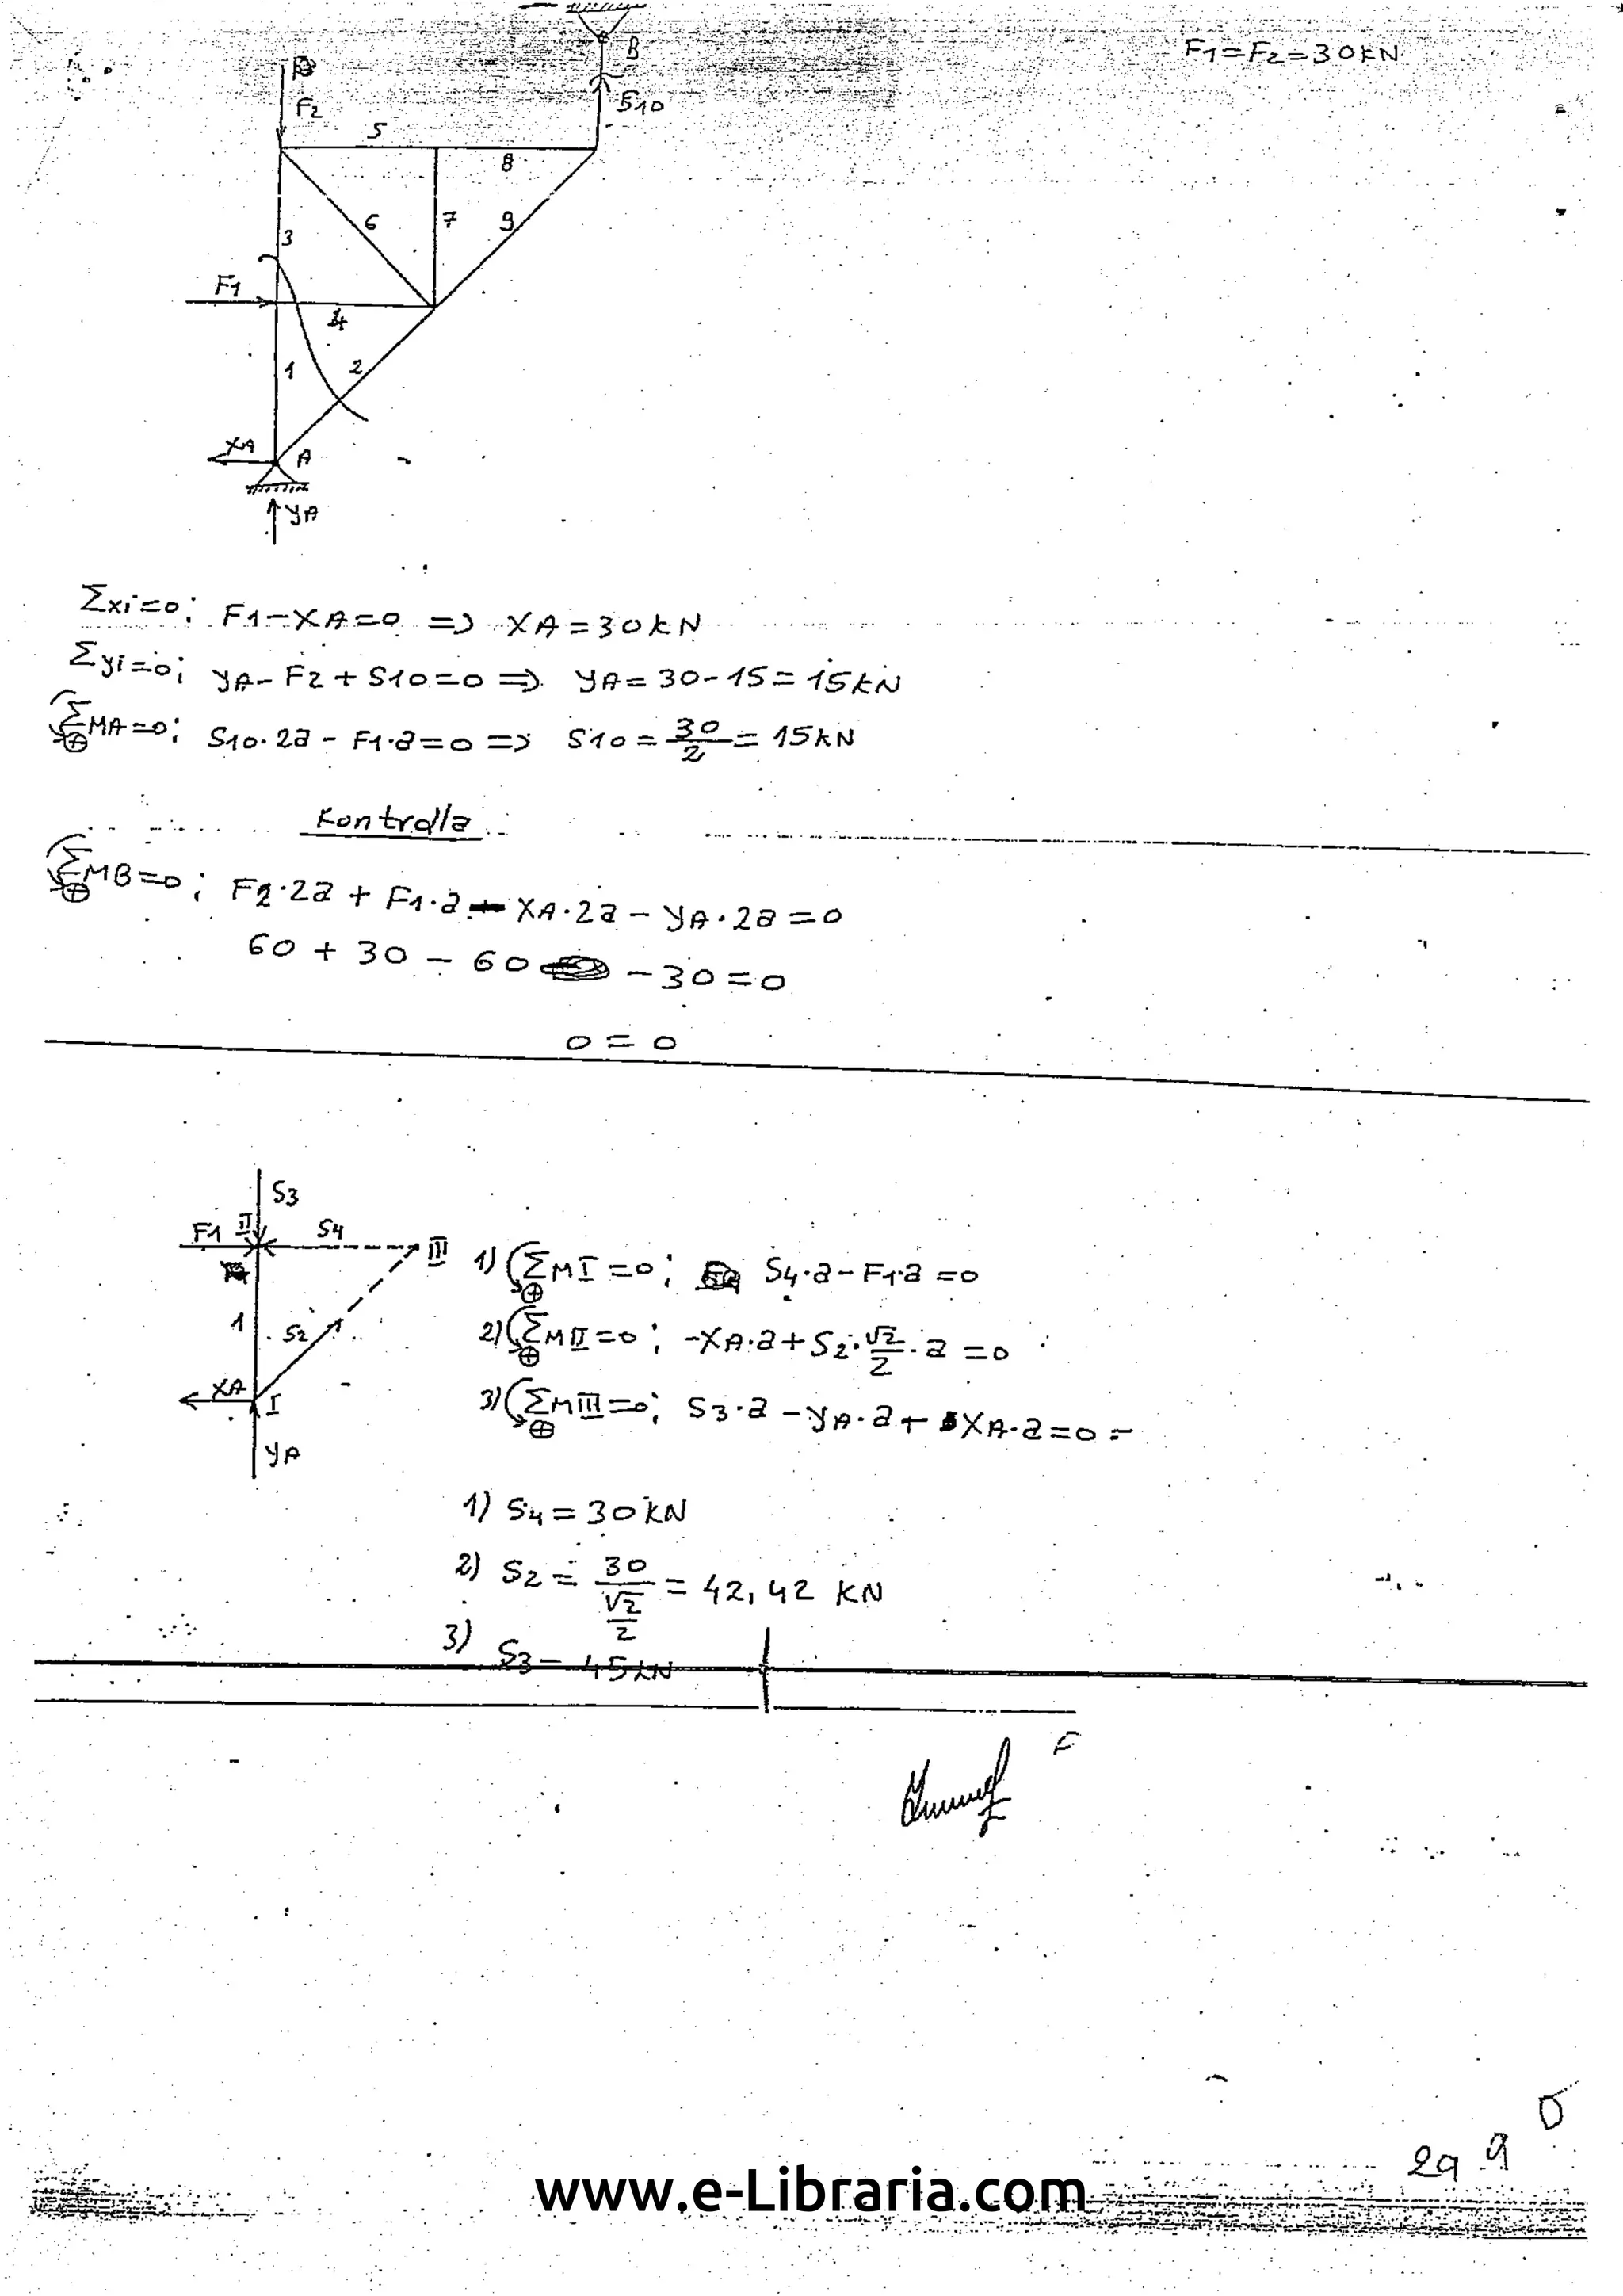 F1=F2=30KN
B
F2
S10
5
8
6
7
9
3
F1
4
1
2
XA
A
YA
Σxi=0; F1-XA=0 => XA=30kN
Σyi=0; YA-F2+S10=0 => YA=30-15=15kN
ΣMA=0; S10·2a-F1·a=0 => S10=30/2=15kN
Kontrolla
ΣMB=0; F2·2a+F1·a-XA·2a-YA·2a=0
60+30-60-30=0
0=0
S3
F1 II S4
III
1) ΣMI=0; S4·a-F1·a=0
1
S2
2) ΣMII=0; -XA·a+S2·√2/2·a=0
XA
I
3) ΣMIII=0; S3·a-YA·a+XA·a=0=
YA
1) S4=30kN
2) S2=30/(√2/2)=42,42 KN
3) S3=45kN
F
29 9
www.e-Libraria.com